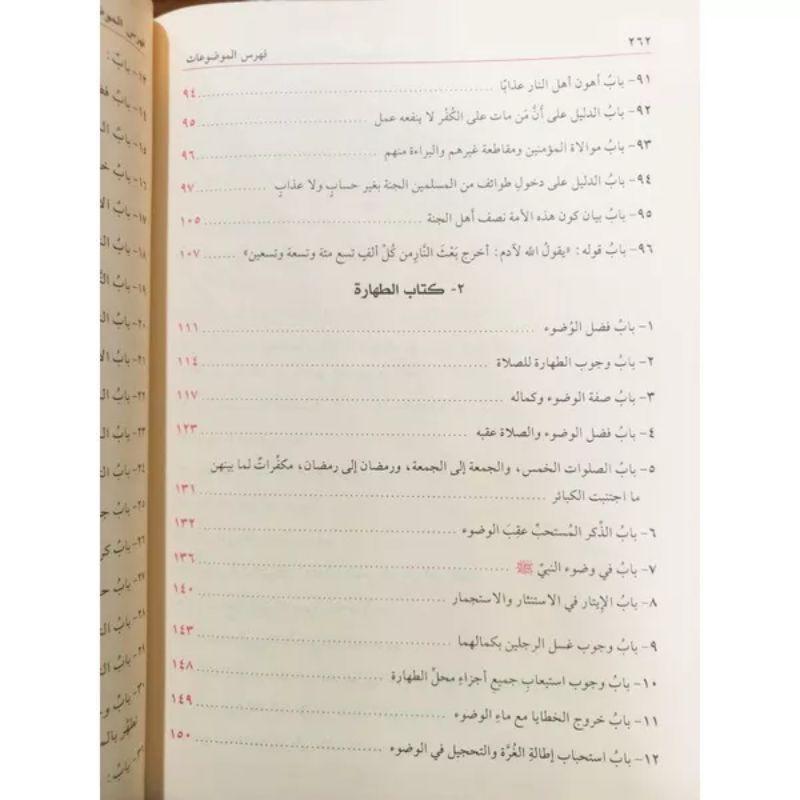 ٢٦٢
فهرس الموضوعات
٩١- بابُ أهون أهل النار عذابًا ٩٤
٩٢- بابُ الدليل على أَنَّ مَن مات على الكُفْر لا ينفعه عمل ٩٥
٩٣- بابُ موالاة المؤمنين ومقاطعة غيرهم والبراءة منهم ٩٦
٩٤- بابُ الدليل على دخولِ طوائف من المسلمين الجنة بغير حسابٍ ولا عذابٍ ٩٧
٩٥- بابُ بيان كون هذه الأمة نصف أهل الجنة ١٠٥
٩٦- بابُ قوله: «يقولُ الله لآدم: أخرج بَعْثَ النَّارِ من كُلِّ ألفٍ تسع مئة وتسعة وتسعين» ١٠٧
٢- كتاب الطهارة
١- بابُ فضل الوُضوء ١١١
٢- بابُ وجوب الطهارة للصلاة ١١٤
٣- بابُ صفة الوضوء وكماله ١١٧
٤- بابُ فضل الوضوء والصلاة عقبه ١٢٣
٥- بابُ الصلوات الخمس، والجمعة إلى الجمعة، ورمضان إلى رمضان، مكفِّراتٌ لما بينهن
ما اجتنبت الكبائر ١٣١
٦- بابُ الذِّكر المُستحبِّ عقِبَ الوضوء ١٣٢
٧- بابُ في وضوء النبيِّ ﷺ ١٣٦
٨- بابُ الإيتار في الاستنثار والاستجمار ١٤٠
٩- بابُ وجوب غسل الرجلين بكمالهما ١٤٣
١٠- بابُ وجوب استيعابِ جميعِ أجزاءِ محلِّ الطهارة ١٤٨
١١- بابُ خروج الخطايا مع ماءِ الوضوء ١٤٩
١٢- بابُ استحباب إطالةِ الغُرَّة والتحجيل في الوضوء ١٥٠